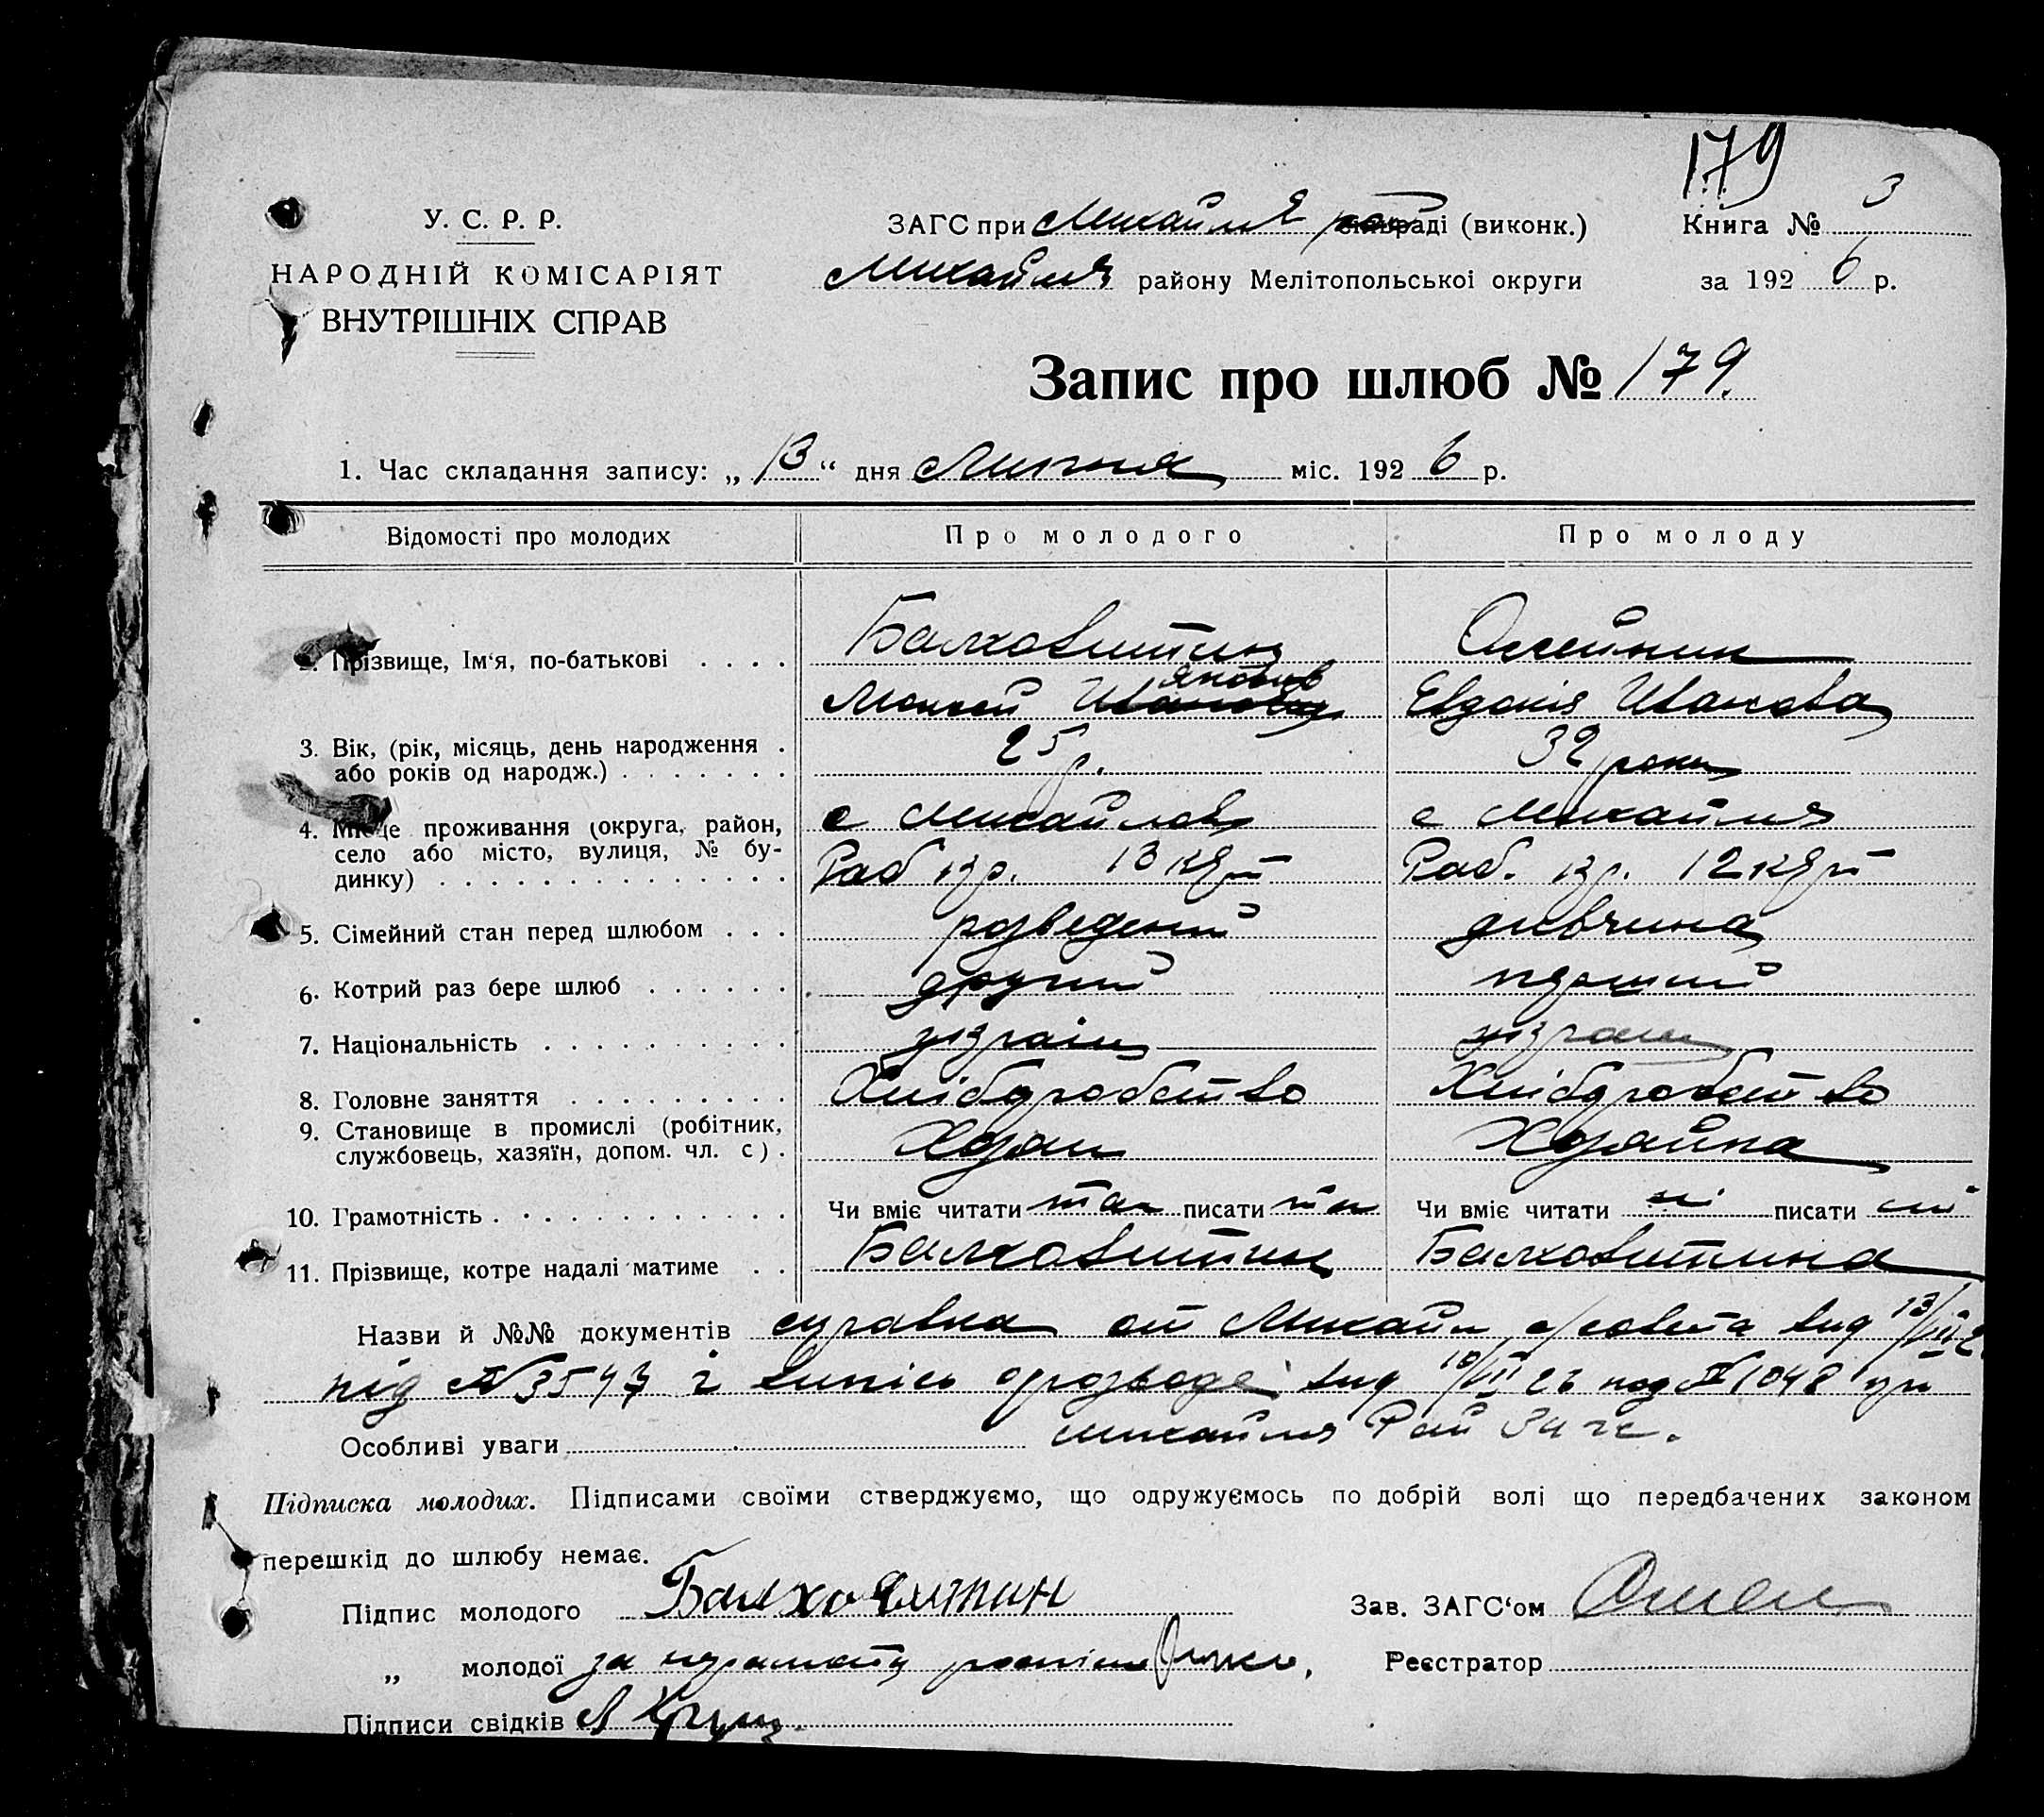 179
У. С. Р. Р.
НАРОДНІЙ КОМІСАРІЯТ
ВНУТРІШНІХ СПРАВ
ЗАГС при Михайлів раді (виконк.)
Михайлів району Мелітопольської округи
Книга № 3
за 1926 р.
Запис про шлюб № 179.
1. Час складання запису: „13“ дня Липня міс. 1926 р.
Відомості про молодих
Про молодого
Про молоду
2. Прізвище, Ім'я, по-батькові . . . .
Балховитин
Яковів
Мойсей Иванович
Олейник
Евдокія Иванова
3. Вік, (рік, місяць, день народження .
або років од народж.) . . . . . . .
25 р.
32 роки
4. Місце проживання (округа, район,
село або місто, вулиця, № бу-
динку) . . . . . . . . . . . . . .
с Михайлов
13
с Михайлів
12
5. Сімейний стан перед шлюбом . . .
розведений
дивчина
6. Котрий раз бере шлюб . . . . . .
другий
перший
7. Національність . . . . . . . . . .
украін
украін
8. Головне заняття . . . . . . . . .
Хлібробство
Хлібробство
9. Становище в промислі (робітник,
службовець, хазяїн, допом. чл. с) .
Хозяин
Хозяйка
10. Грамотність . . . . . . . . . . . .
Чи вміє читати так писати так
Чи вміє читати ні писати ні
11. Прізвище, котре надалі матиме . .
Балховитин
Балховитина
Назви й №№ документів справка от Михайл с/совета вид 13/VII 2
під № 3547 і випісь о розводе вид 10/VII 26 под № 1048 при
Михайлів Рай Загс.
Особливі уваги
Підписка молодих. Підписами своїми стверджуємо, що одружуємось по добрій волі що передбачених законом
перешкід до шлюбу немає.
Підпис молодого Балховитин
Зав. ЗАГС'ом
„ молодої за неграмотну
Реєстратор
Підписи свідків